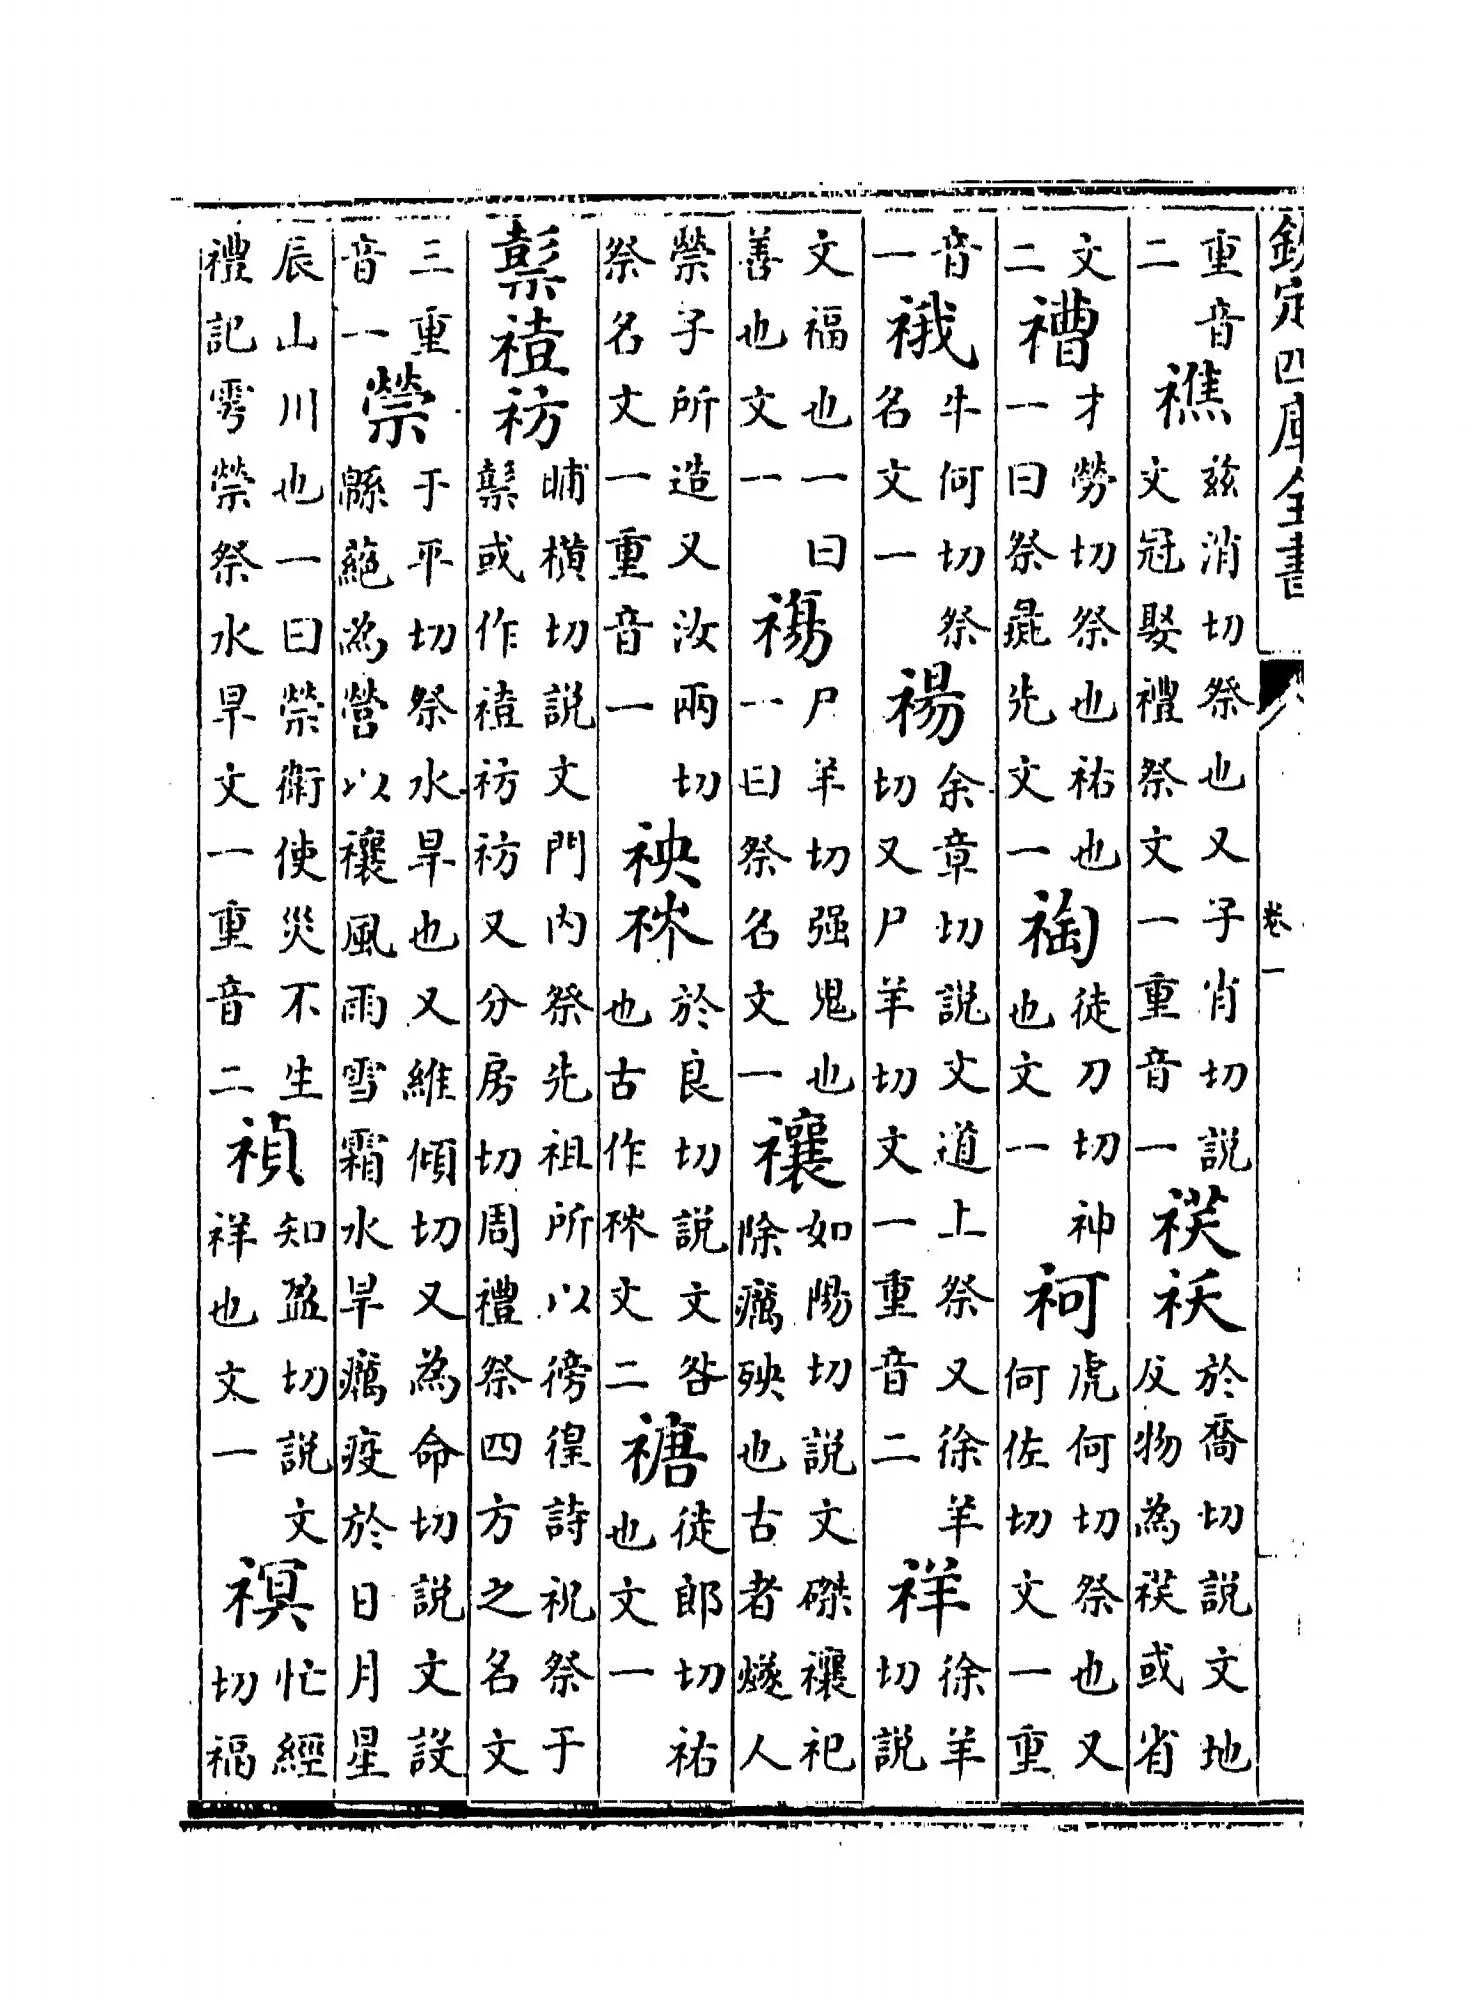 欽定四庫全書 卷一
重音二𥛲兹消切祭也又子肖切説文冠娶禮祭文一重音一祅於喬切説文地反物為或省
文二䄚才勞切祭也祐也一曰祭彘先文一祹徒刀切神也文一虎何切祭也又何佐切文一重
音一䄉牛何切祭名文一禓余章切説文道上祭又徐羊切又尸羊切文一重音二祥徐羊切説
文福也一曰善也文一尸羊切强鬼也一曰祭名文一禳如陽切説文磔禳祀除癘殃也古者燧人
禜子所造又汝兩切祭名文一重音一䄃於良切説文咎也古作文二禟徒郎切祐也文一
祊晡横切説文門内祭先祖所以徬徨詩祝祭于或作祊祊又分房切周禮祭四方之名文
三重音一禜于平切祭水旱也又維傾切又為命切説文設緜蕝為營以禳風雨雪霜水旱癘疫於日月星
辰山川也一曰禜衛使災不生禮記雩禜祭水旱文一重音二禎知盈切説文祥也文一䄙忙經切福